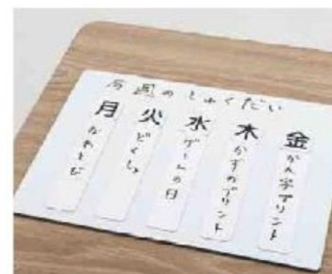 今週のしゅくだい
月
なわとび
火
どくしょ
水
ゲームの日
木
かずのプリント
金
かん字プリント